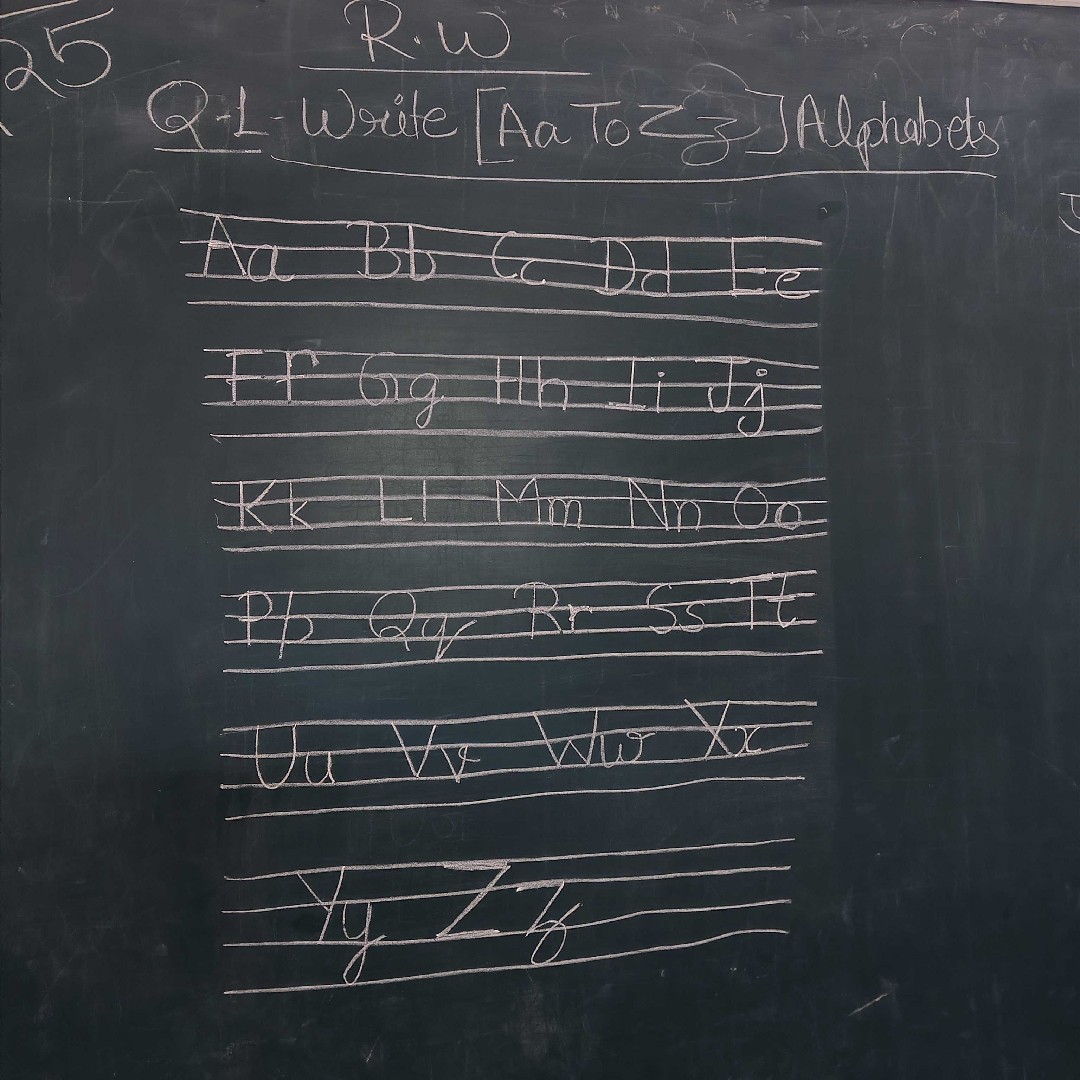 25
R.W
Q-1- Write [Aa To Zz] Alphabets
Aa Bb Cc Dd Ee
Ff Gg Hh Ii Jj
Kk Ll Mm Nn Oo
Pp Qq Rr Ss Tt
Uu Vv Ww Xx
Yy Zz